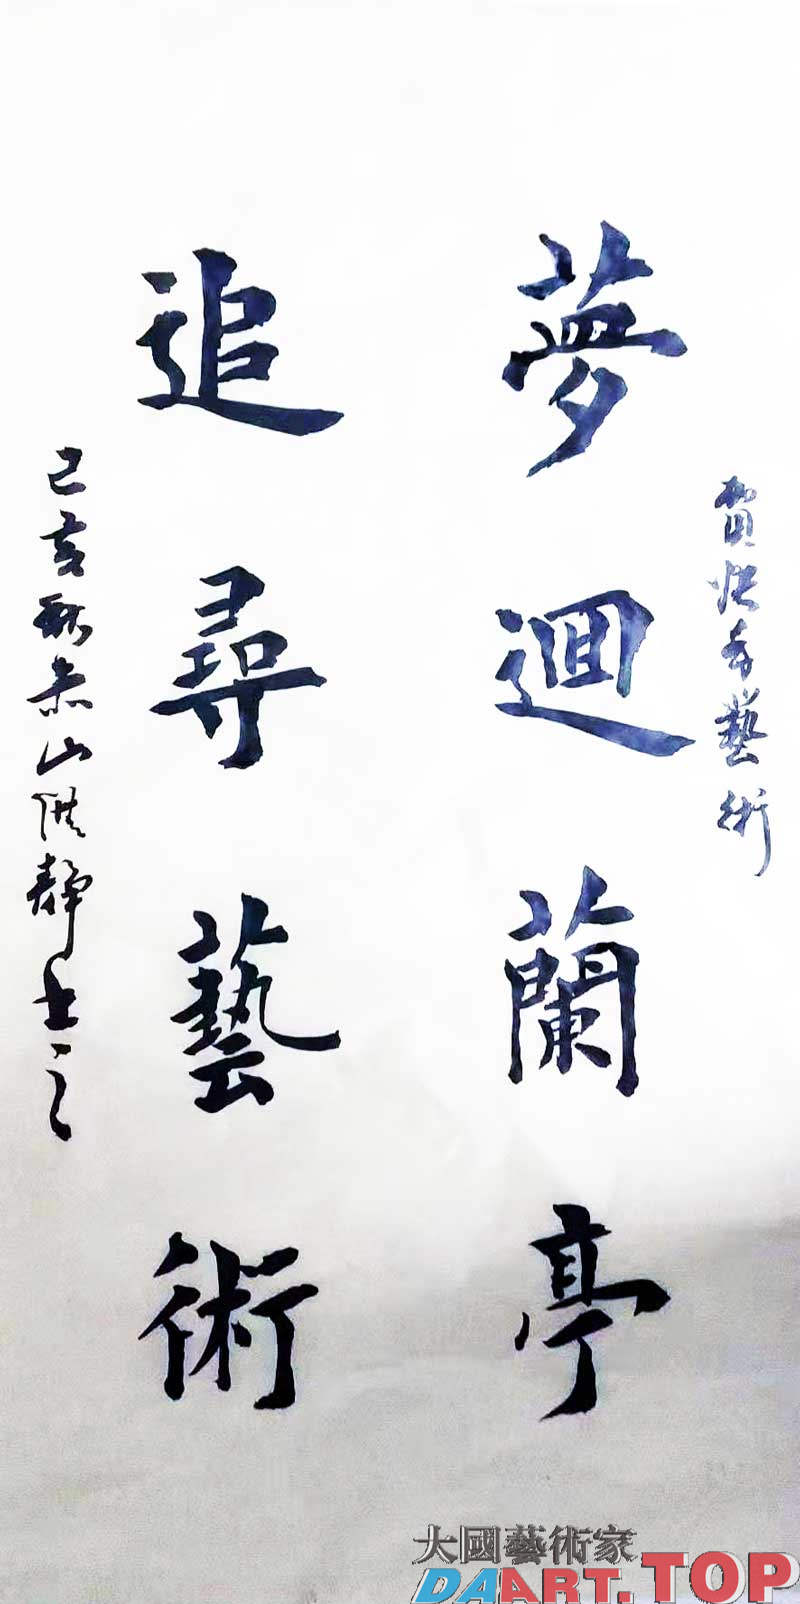 賀快手藝術
夢迴蘭亭
追尋藝術
己亥秋 山洪靜書之
大國藝術家
DAART.TOP